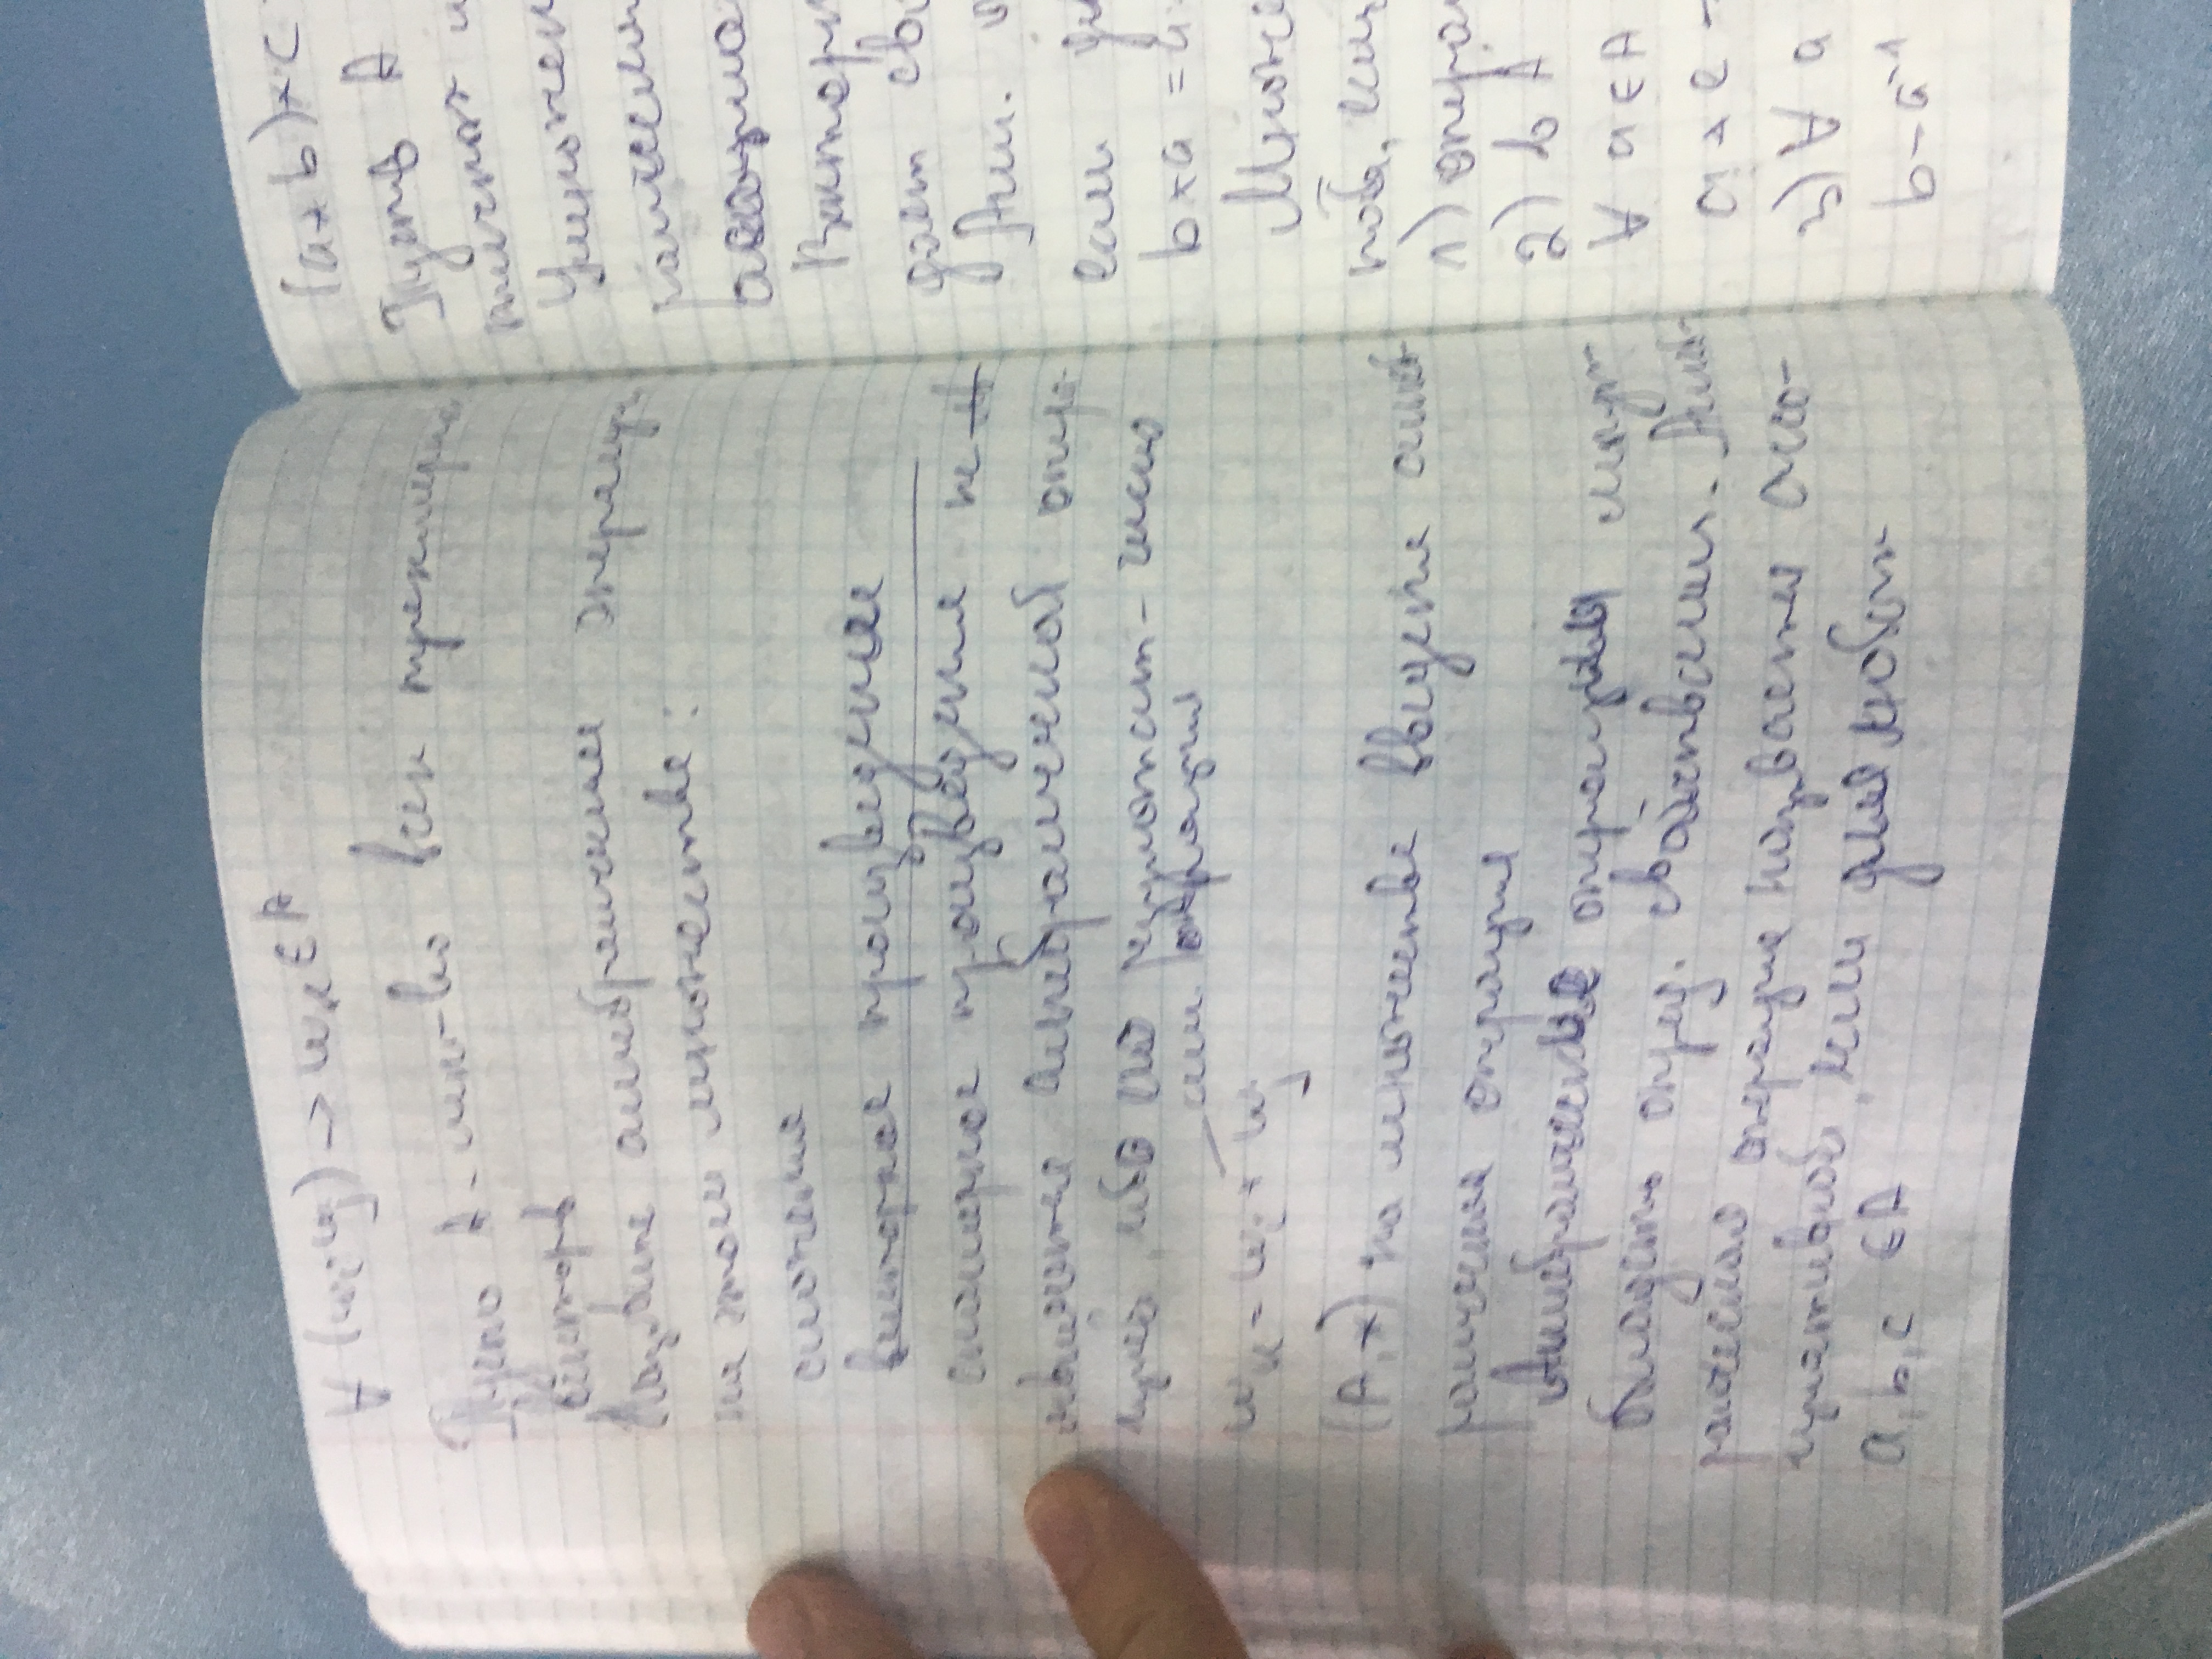 ∀ (wi, wj) → wк ∈ A
Пусть A - мн-во всех трехмерных
векторов
Назовите алгебраические операции
на этом множестве:
сложения
векторное произведение
скалярное произведения не
являются алгебраической опера-
цией, ибо его результат - число
алг. операция
wк = wi * wj
(A, *) на множестве введена алгеб-
раическая операция
Алгебраические операции могут
обладать опред. свойствами. Алгеб-
раическая операция называется ассо-
циативной, если для любых
a, b, c ∈ A
(a * b) * c
Пусть A
Умножен
Вектор
дает сво
Алг. о
если дл
b * a = a
Множе
пой, если
1) опера
2) в A
∀ a ∈ A
a * e =
3) ∀ a
b = a⁻¹